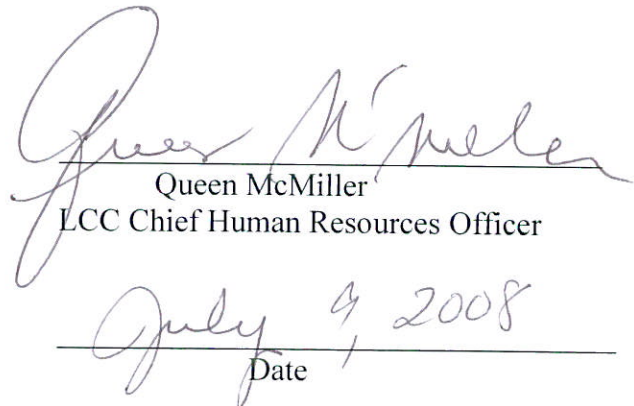 Queen McMiller
Queen McMiller
LCC Chief Human Resources Officer
July 9, 2008
Date